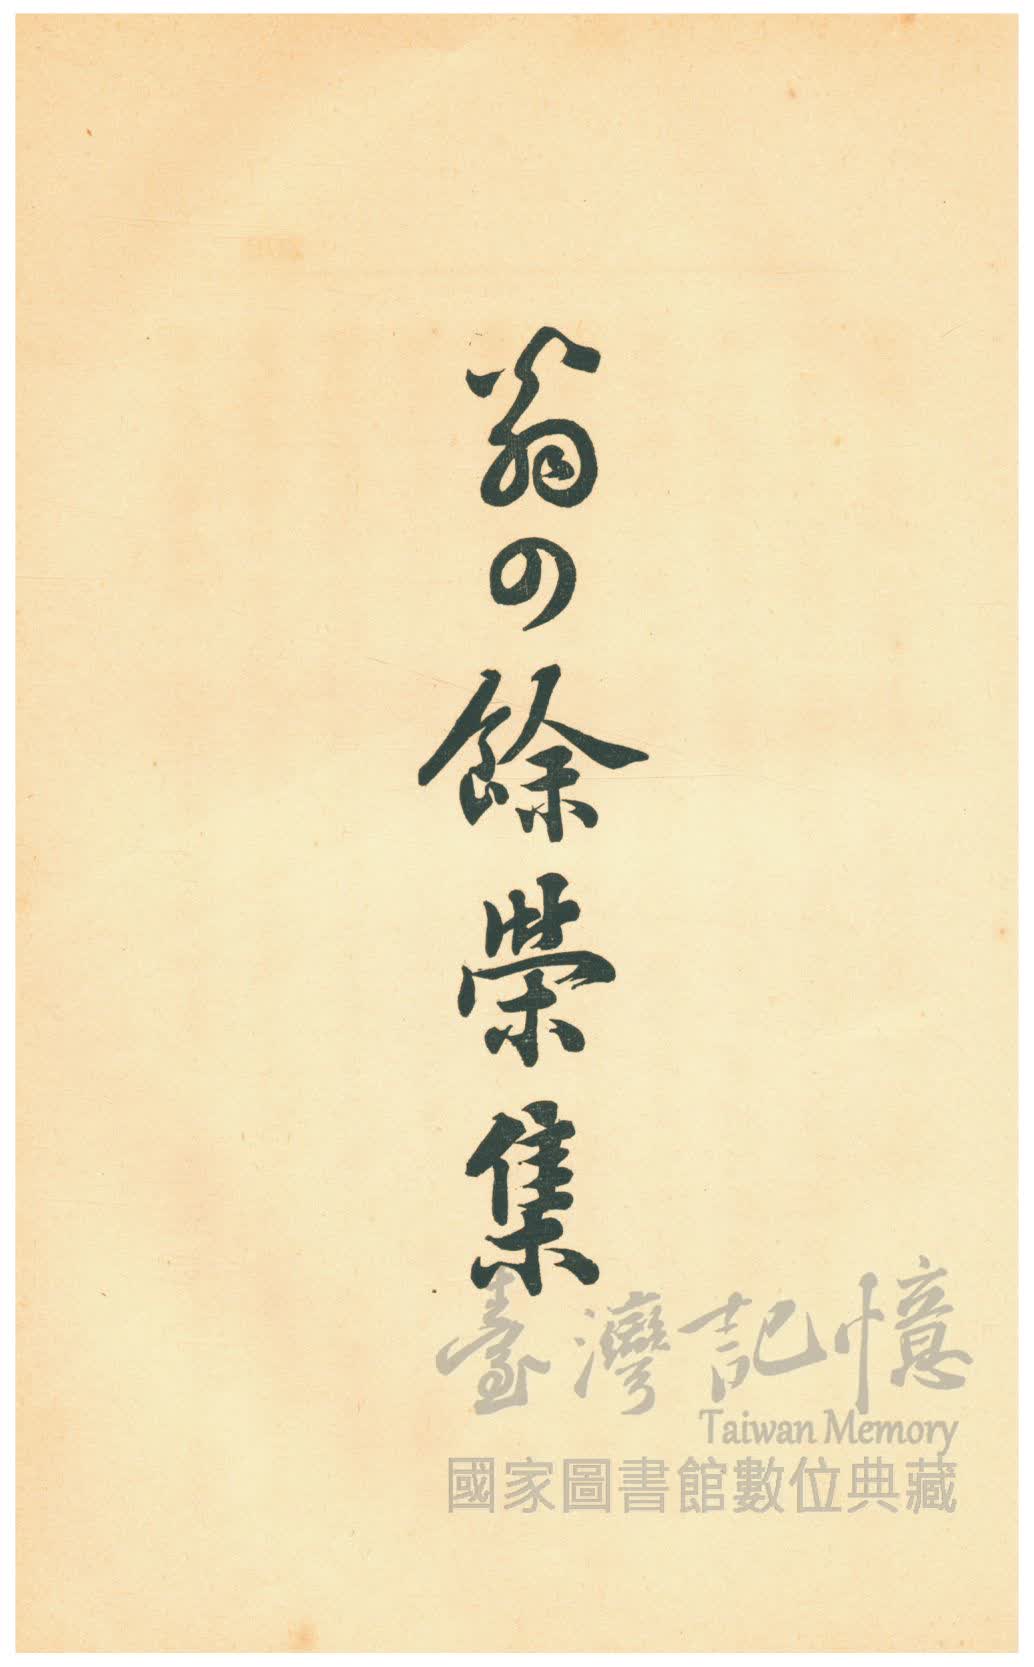 翁の餘榮集
臺灣記憶
Taiwan Memory
國家圖書館數位典藏